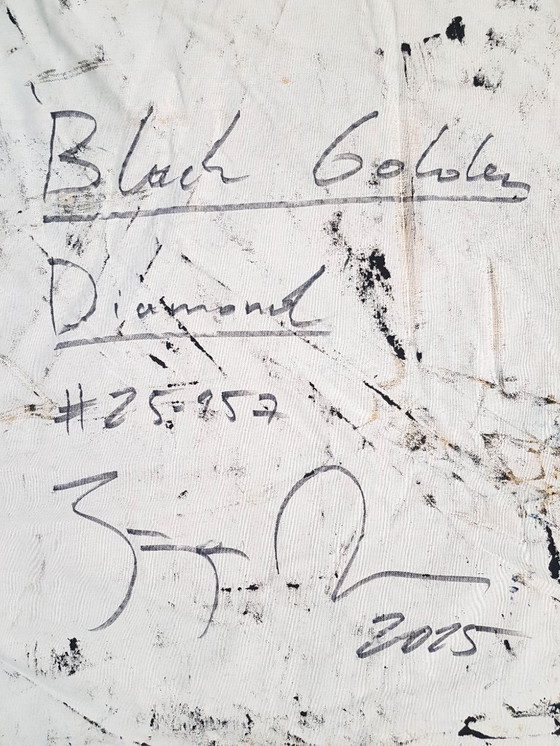 Black Golden
Diamond
#25-157
2025